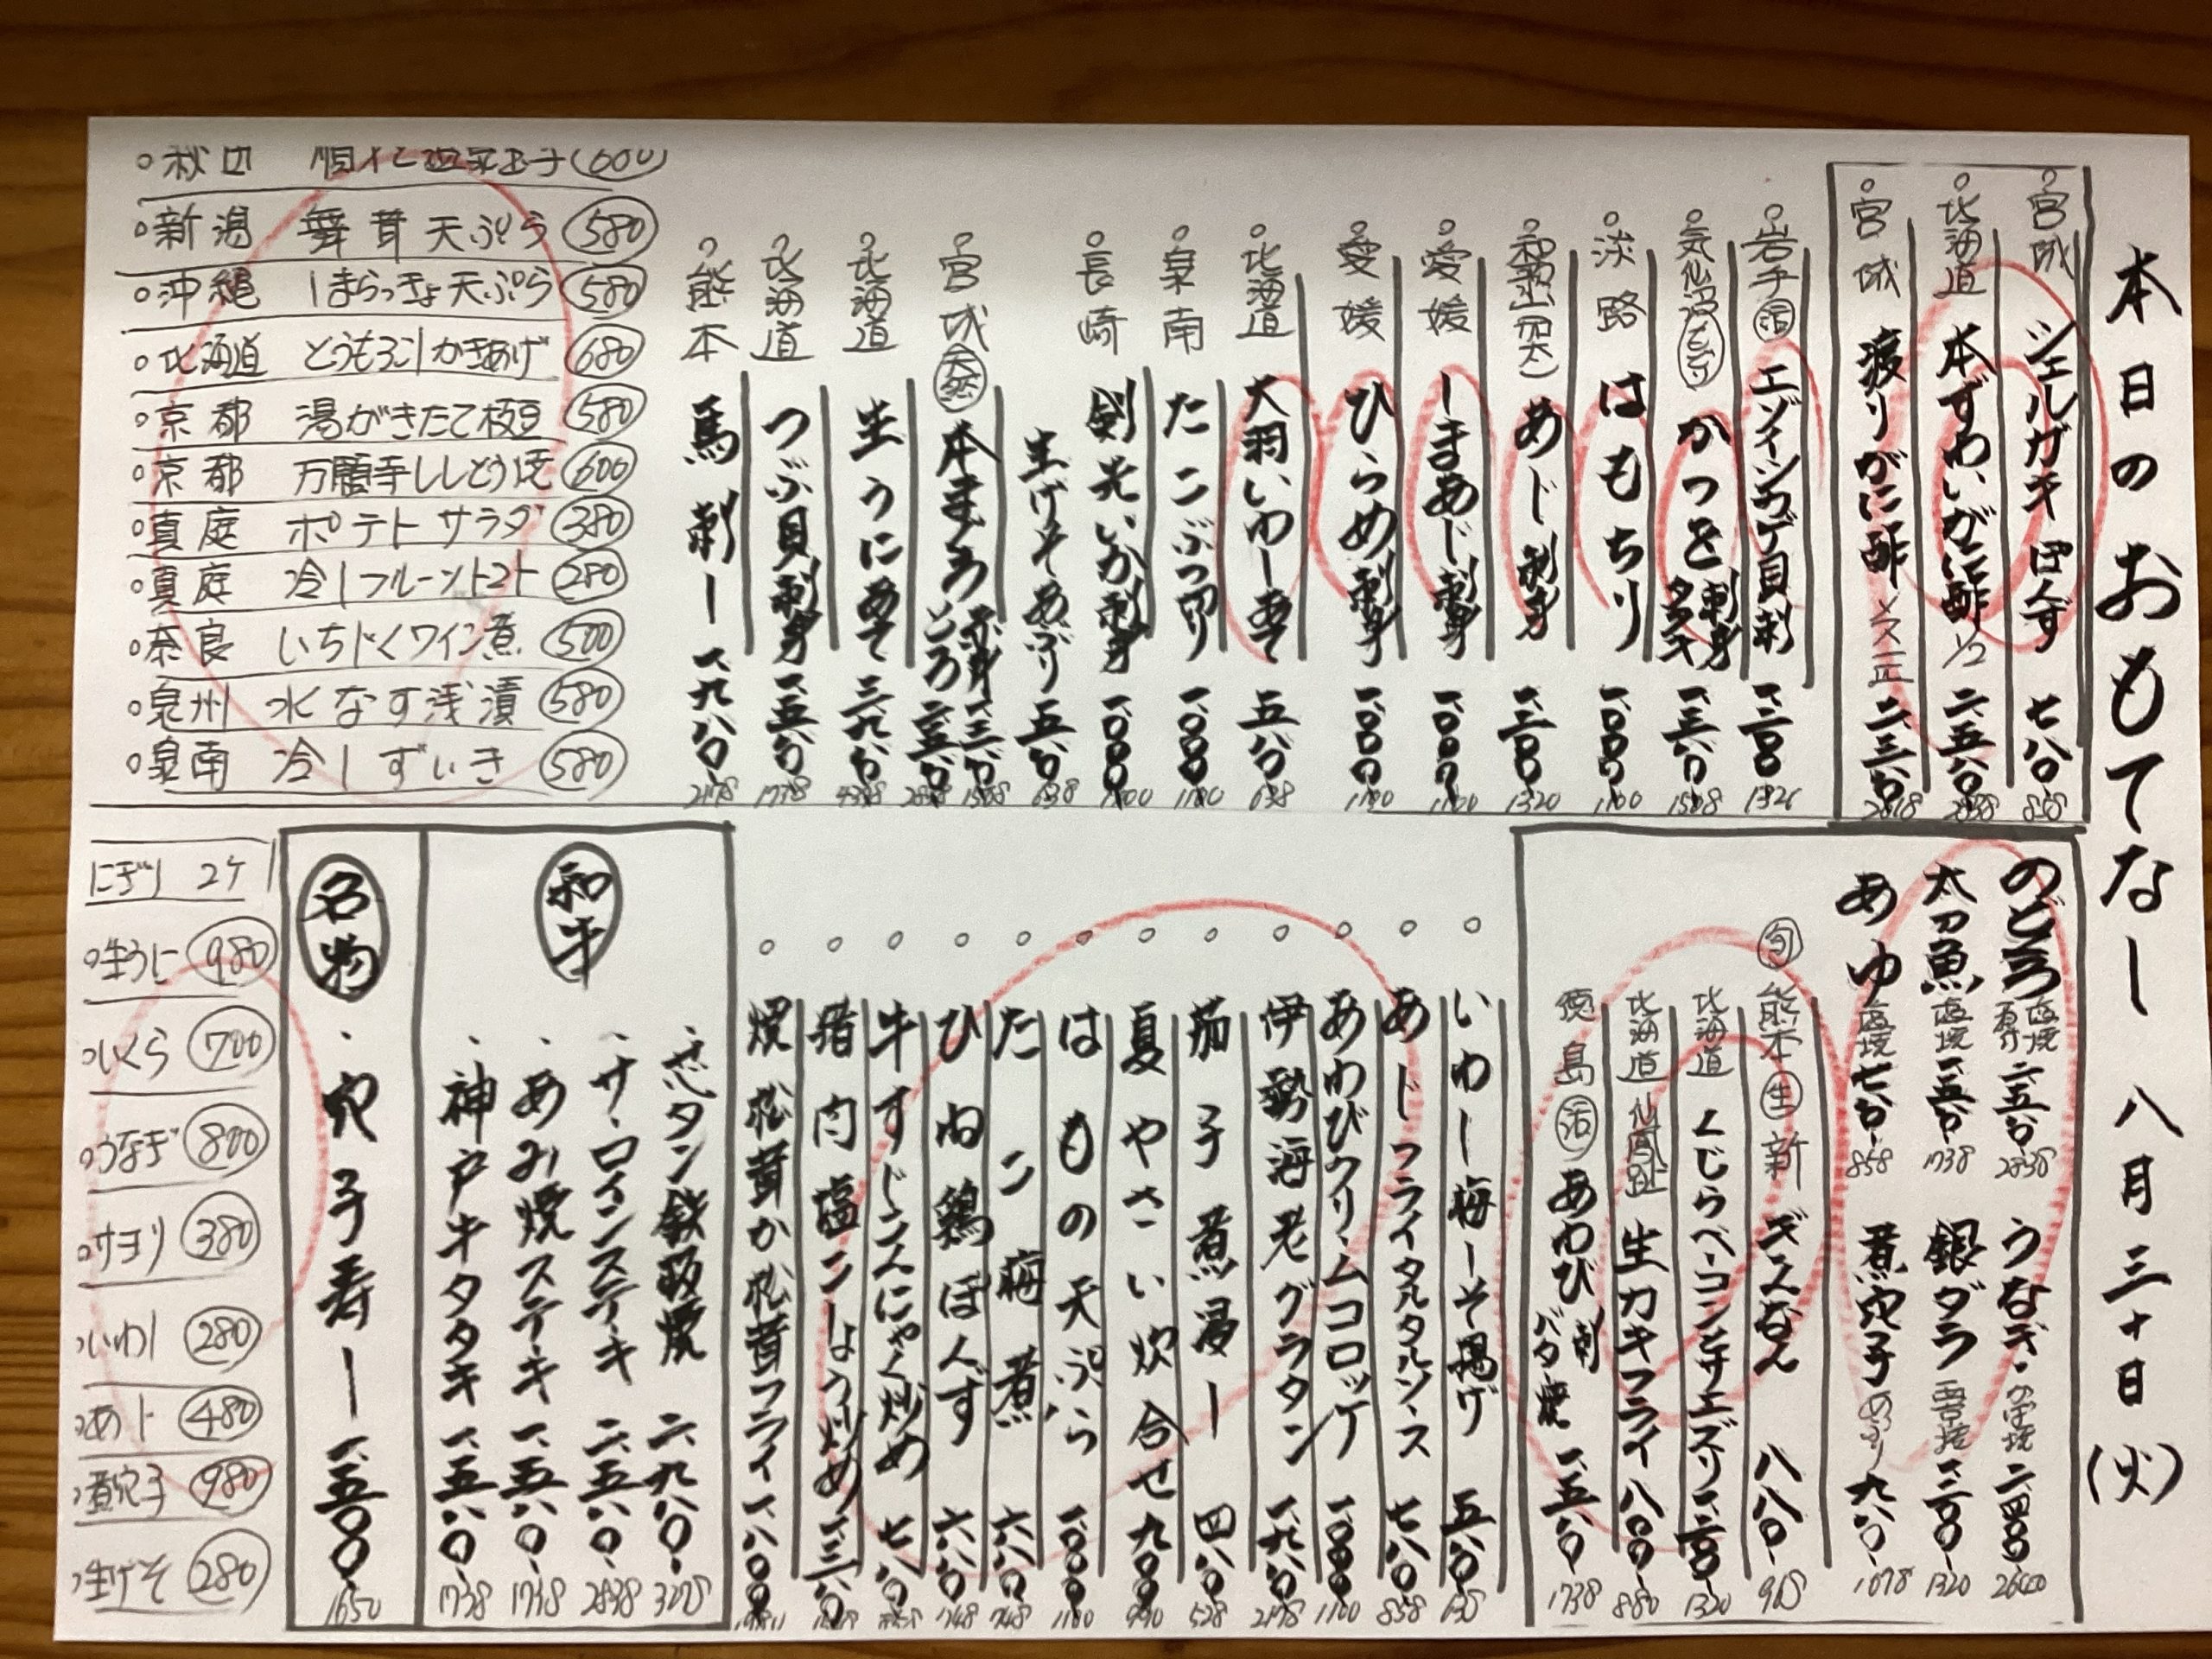 本日のおもてなし 八月三十日(火)
宮城 シェルガキ ぽんず 七八〇 858
北海道 本ずわいがに酢 1/2 二、五八〇 2838
宮城 渡りがに酢 二、三八〇
岩手 活 エゾイシカゲ貝刺 一、二〇〇 132
気仙沼 かつを 刺身 タタキ 一、三八〇 1518
淡路 はもちり 一、〇〇〇 1100
和歌山(加太) あじ刺身 一、二〇〇 1320
愛媛 しまあじ刺身 一、〇〇〇 1100
愛媛 ひらめ刺身 一、〇〇〇 1100
北海道 大羽いわしあて 五八〇 638
泉南 たこぶつ切り 一、〇〇〇 1100
長崎 剣先いか刺身 一、〇〇〇 1100
生げそあぶり 五八〇 638
宮城 天然 本まぐろ 赤身 一、三八〇 1518
とろ 二、五八〇 2838
北海道 生うにあて 三、九八〇 4378
北海道 つぶ貝刺身 一、五八〇 1738
熊本 馬刺し 一、九八〇 2178
秋田 600
新潟 舞茸天ぷら 580
沖縄 しまらっきょ天ぷら 580
北海道 とうもろこしかきあげ 680
京都 湯がきたて枝豆 580
京都 万願寺ししとう焼 600
真庭 ポテトサラダ 380
真庭 冷しフルーツトマト 280
奈良 いちじくワイン煮 500
泉州 水なす浅漬 580
泉南 冷しずいき 580
のどぐろ 塩焼 二、五八〇 2838
太刀魚 塩焼 一、五八〇 1738
あゆ 塩焼 七八〇 858
うなぎ 二、四〇〇 2640
銀ダラ 西京焼 一、二〇〇 1320
煮穴子 あぶり 九八〇 1078
旬 熊本 生 新ぎんなん 八八〇 968
北海道 くじらベーコン サエズリ 一、二〇〇 1320
北海道 仙鳳趾 生カキフライ 八〇〇 880
徳島 活 あわび 刺 バタ焼 一、五八〇 1738
いわし梅しそ揚げ 五八〇 638
あじフライタルタルソース 七八〇 858
あわびクリームコロッケ 一、〇〇〇 1100
伊勢海老グラタン 一、九八〇 2178
茄子煮浸し 四八〇 528
夏やさい炊合せ 九〇〇 990
はもの天ぷら 一、〇〇〇 1100
たこ梅煮 六八〇 748
ひね鶏ぽんず 六八〇 748
牛すじこんにゃく炒め 七八〇 858
猪肉塩こしょう炒め
焼松茸か松茸フライ 一、八〇〇
和牛
芯タン鉄板焼 二、九八〇 3278
サーロインステーキ 二、五八〇 2838
あみ焼ステーキ 一、五八〇 1738
神戸牛タタキ 一、五八〇 1738
名物
穴子寿し 一、五〇〇 1650
にぎり 2ケ
生うに 980
いくら 700
うなぎ 800
サヨリ 380
いわし 280
あじ 480
煮穴子 980
生げそ 280